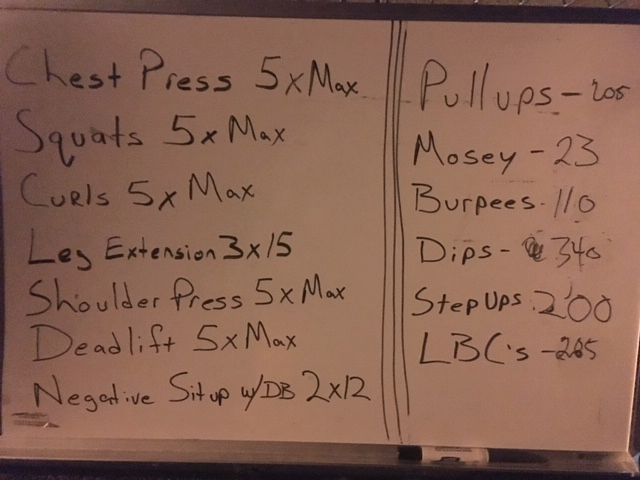 Chest Press 5xMax
Squats 5x Max
Curls 5x Max
Leg Extension 3x15
Shoulder Press 5xMax
Deadlift 5xMax
Negative Situp w/DB 2x12
Pullups - 205
Mosey - 23
Burpees - 110
Dips - 340
Step Ups - 200
LBC's - 285